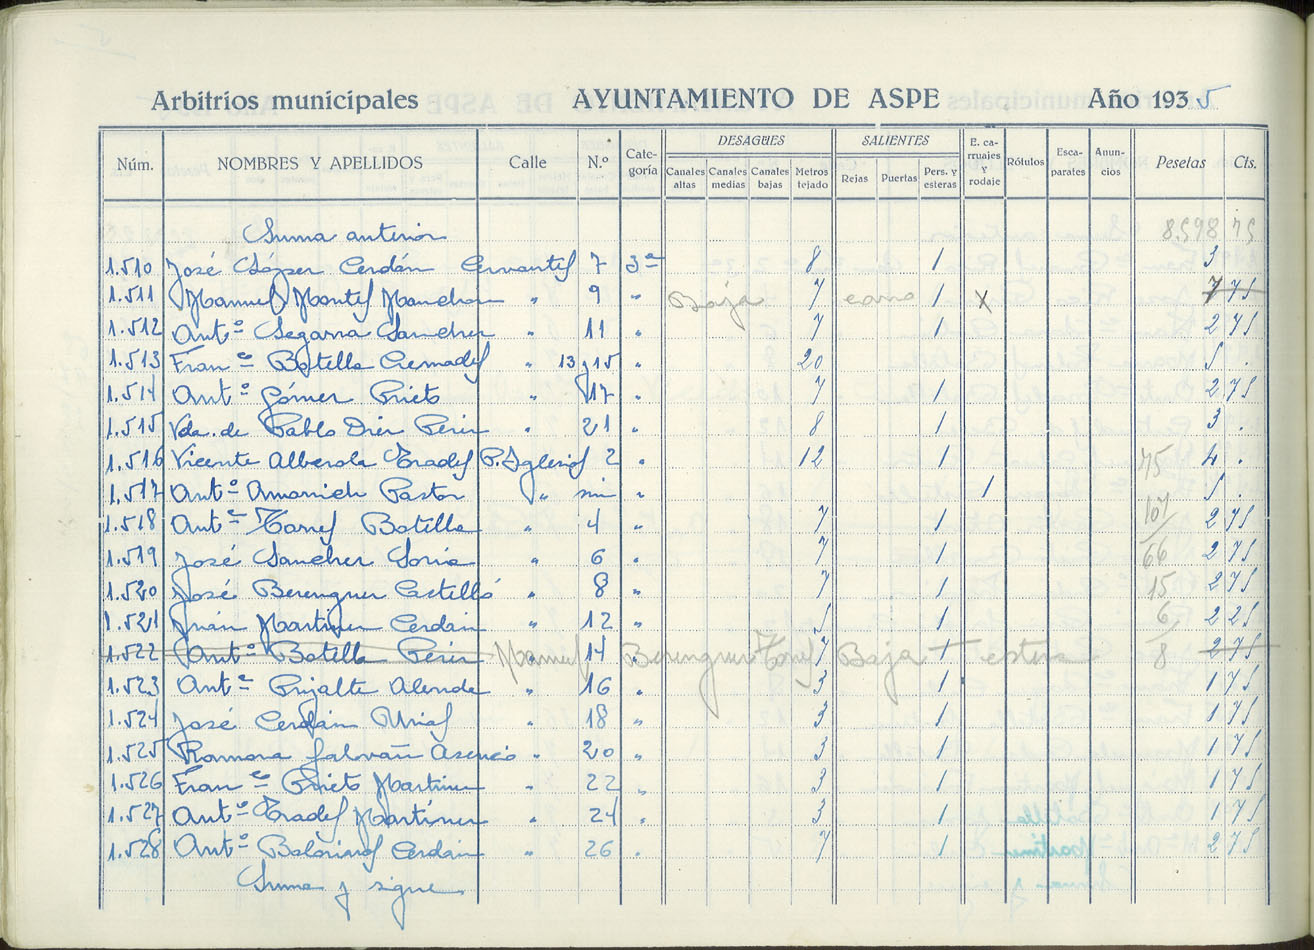 Arbitrios municipales AYUNTAMIENTO DE ASPE Año 1935
Núm. NOMBRES Y APELLIDOS Calle N.º Cate-goría DESAGÜES Canales altas Canales medias Canales bajas Metros tejado SALIENTES Rejas Puertas Pers. y esteras E. ca-rruajes y rodaje Rótulos Esca-parates Anun-cios Pesetas Cts.
Suma anterior 8598 75
1.510 José López Cerdán Cervantes 7 3ª 8 1 3 .
1.511 Manuel Montes Manchon " 9 " Baja 7 1 X 7 75
1.512 Antº Segarra Sanchez " 11 " 7 1 2 75
1.513 Franco Botella Cremades " 13 y 15 " 20 5 .
1.514 Antº Gómez Prieto " 17 " 7 1 2 75
1.515 Vda. de Pablo Diez Perez " 21 " 8 1 3 .
1.516 Vicente Alberola Prades P. Iglesias 2 " 12 1 75 4 .
1.517 Antº Amorich Pastor " sin " 1 5 .
1.518 Antº Torres Botella " 4 " 7 1 107 2 75
1.519 José Sanchez Soria " 6 " 7 1 66 2 75
1.520 José Berenguer Castelló " 8 " 7 1 15 2 75
1.521 Juan Martinez Cerdán " 12 " 5 1 6 2 25
1.522 Antº Botella Perez Manuel 14 " Berenguer Torres 7 Baja 1 estera 8 2 75
1.523 Antº Pujalte Alenda " 16 " 3 1 1 75
1.524 José Cerdán Urias " 18 " 3 1 1 75
1.525 Ramona Galvañ Asencio " 20 " 3 1 1 75
1.526 Franco Prieto Martinez " 22 " 3 1 1 75
1.527 Antº Prades Martinez " 24 " 3 1 1 75
1.528 Antº Bolorinos Cerdán " 26 " 7 1 2 75
Suma y sigue